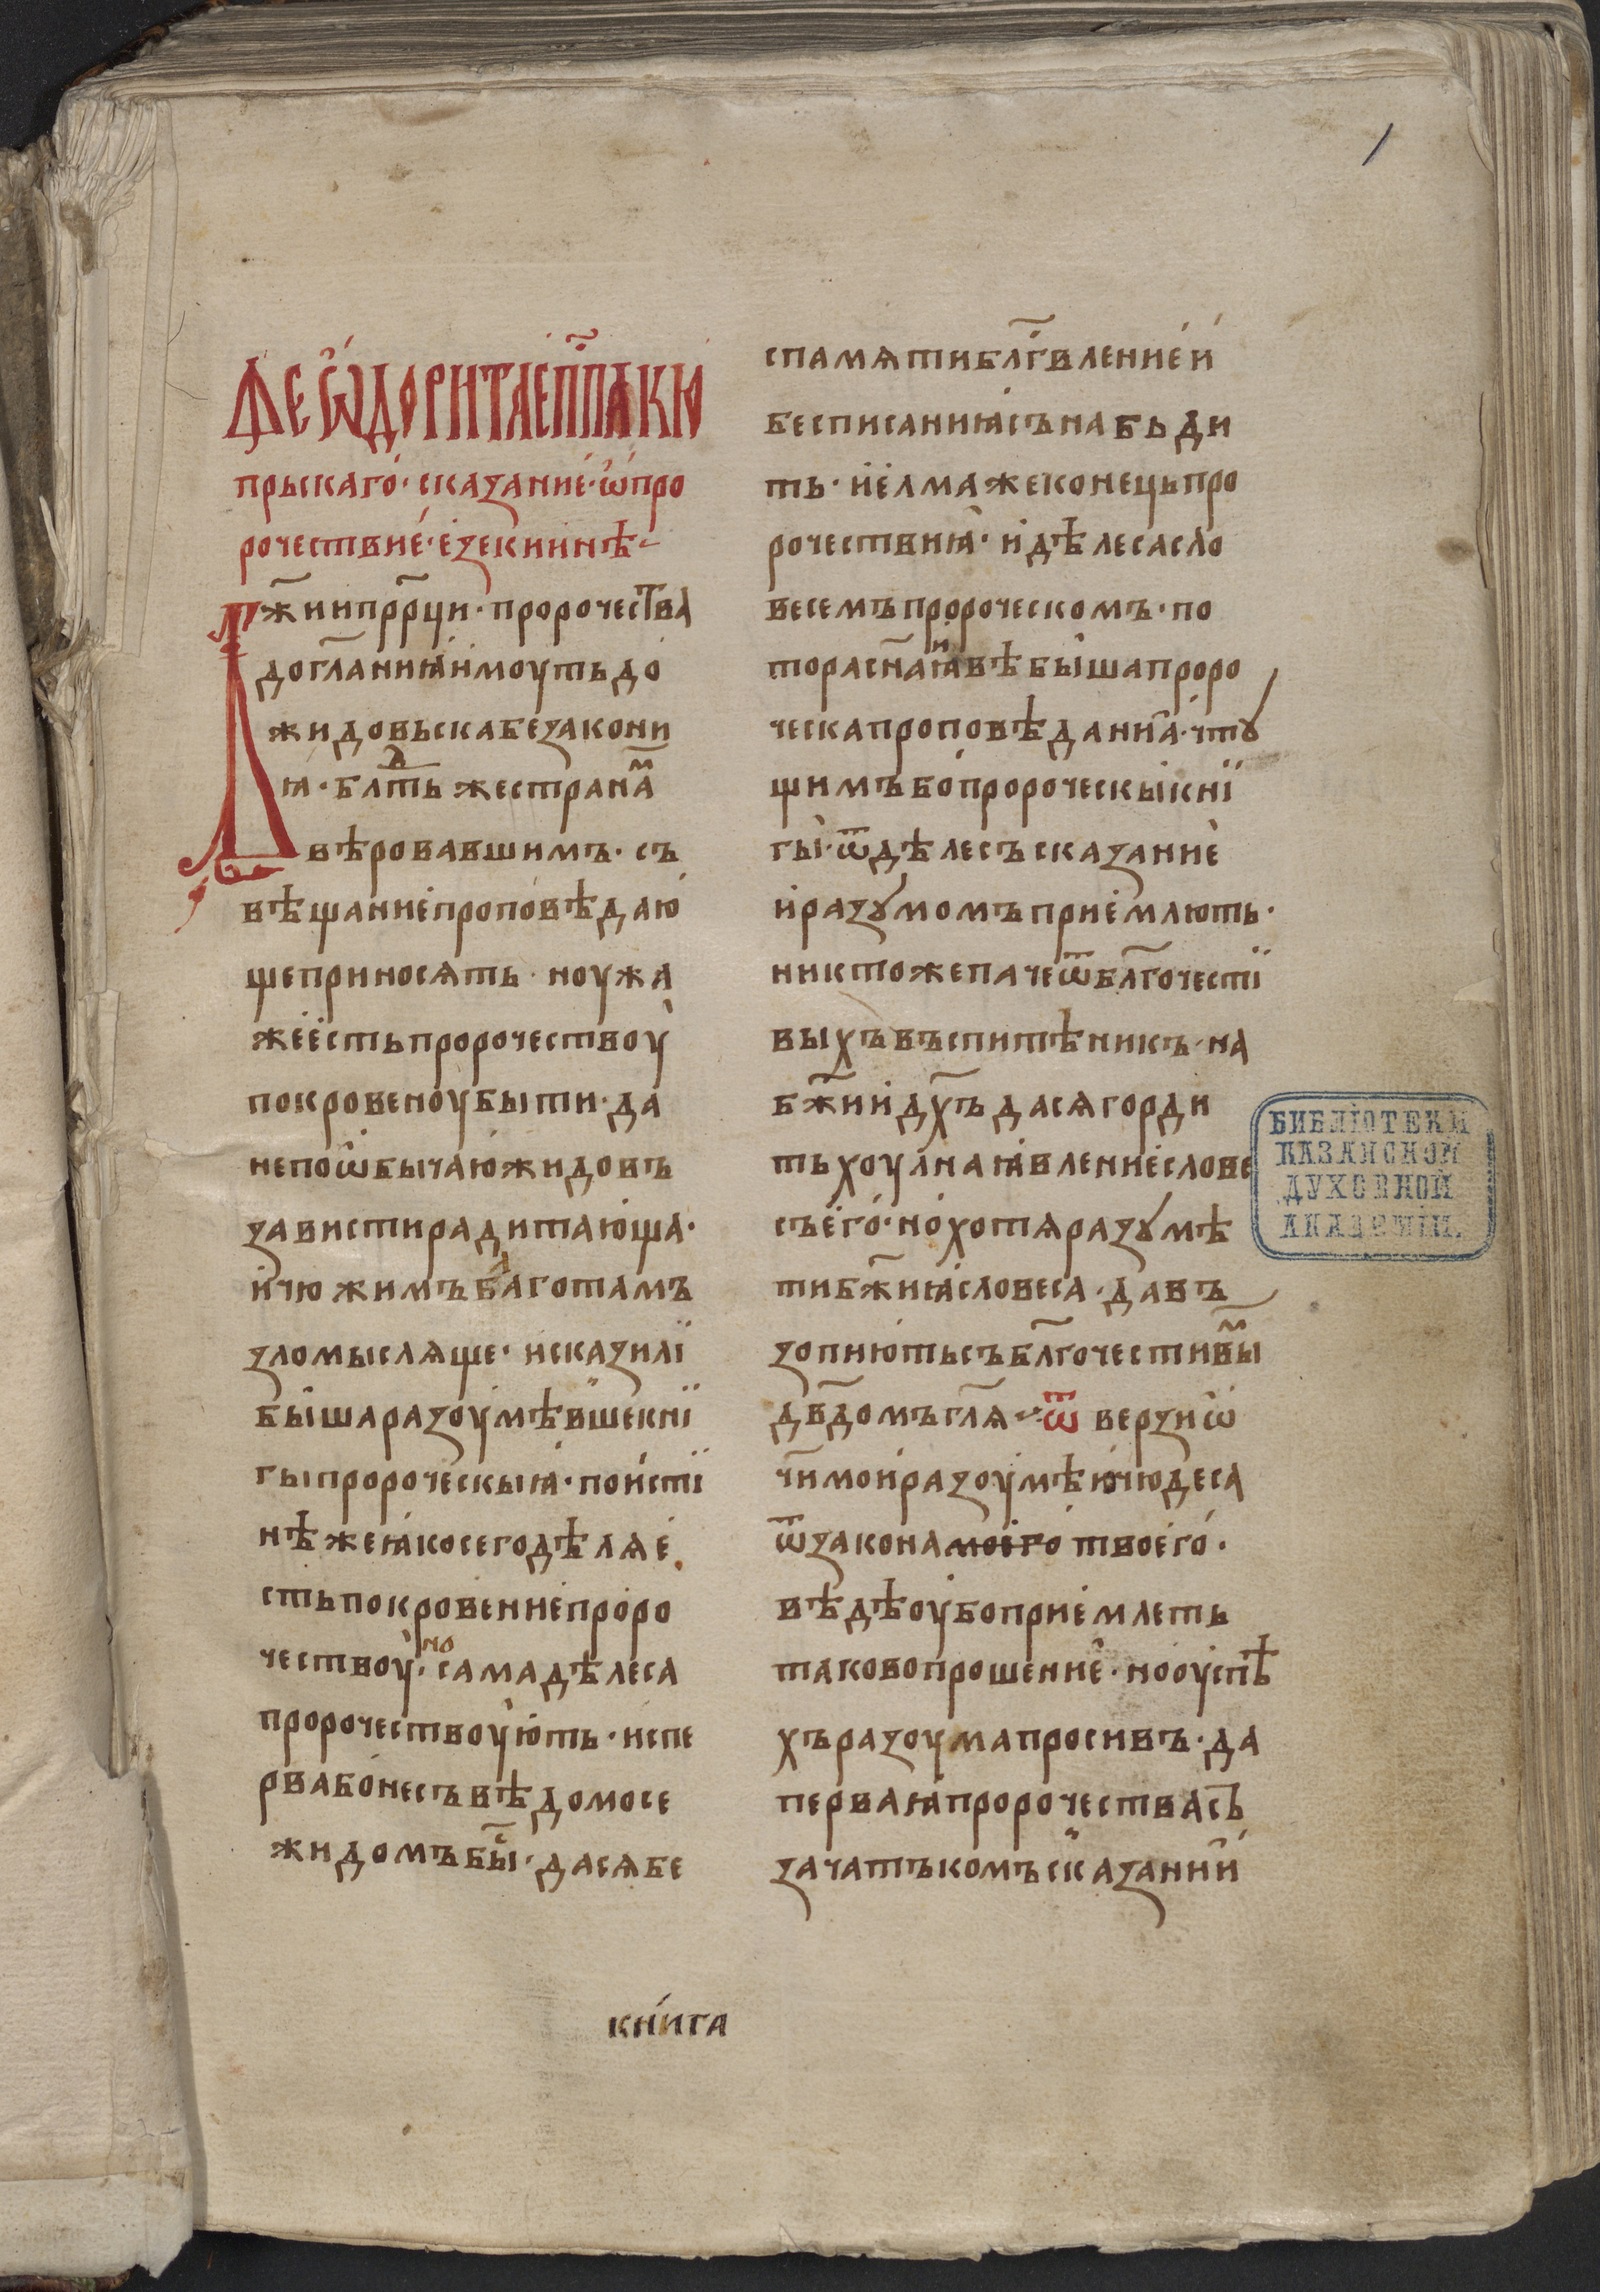 Ѳеѡдорита еп҃па кю
прьскаго· сказание· ѡ про
рочествие· езекиинѣ
Бж҃ии прр҃ци· пророчества
догл҃аниꙗ имоуть до
жидовьска безакони
ꙗ· бл҃гдть же странамъ
вѣровавшимъ· съ
вѣщание проповѣдаю
ще приносѧть· ноужа
же есть пророчествоу
покровеноу быти· да
не по ѡбычаю жидовъ
зависти ради тающа·
и чюжимъ благотамъ
зломыслѧще· исказилї
быша разоумѣвше кнї
гы пророческыꙗ· по истї
нѣ же ꙗко сего дѣлѧ е
сть покровение проро
чествоу· но сама дѣлеса
пророчествоують· испе
рва бо несъвѣдомо се
жидомъ бы҃с· да сѧ бе
с памѧти блг҃вление и
бес писаниꙗ сънабьди
ть· и елма же конець про
рочествиꙗ· и дѣлеса сло
весемъ пророческомъ· по
тораснаꙗ и ꙗвѣ быша проро
ческа проповѣданиꙗ· чту
щимъ бо пророческыꙗ кнї
гы· ѿ дѣлесъ сказание
и разумомъ приемлють·
никто же паче ѿ блг҃очестї
выхъ въспитѣникъ· на
бж҃ии дх҃ъ да сѧ горди
ть хоулна ꙗвление слове
съ его· но хотѧ разумѣ
ти бж҃иꙗ словеса· да въ
зопиють съ блг҃очестивымъ
дв҃домъ гл҃ѧ ѿ верзи ѡ
чи мои разоумѣю чюдеса
ѿ закона моего твоего·
вѣдѣ оубо приемлеть
таково прошение· но оуспѣ
хъ разоума просивъ· да
перваꙗ пророчества съ
зачатъкомъ сказании
книга
1
БИБЛІОТЕКИ
КАЗАНСКОЙ
ДУХОВНОЙ
АКАДЕМІИ.